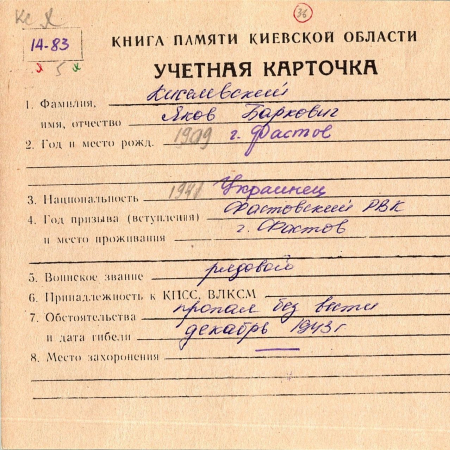 Кс Я
36
1А-83
х 5 х
КНИГА ПАМЯТИ КИЕВСКОЙ ОБЛАСТИ
УЧЕТНАЯ КАРТОЧКА
1. Фамилия, Киселевский
имя, отчество Яков Баркович
2. Год и место рожд. 1909 г. Фастов
3. Национальность 1941 Украинец
4. Год призыва (вступления) Фастовский РВК
и место проживания г. Фастов
5. Воинское звание рядовой
6. Принадлежность к КПСС, ВЛКСМ
7. Обстоятельства пропал без вести
и дата гибели декабрь 1943 г
8. Место захоронения